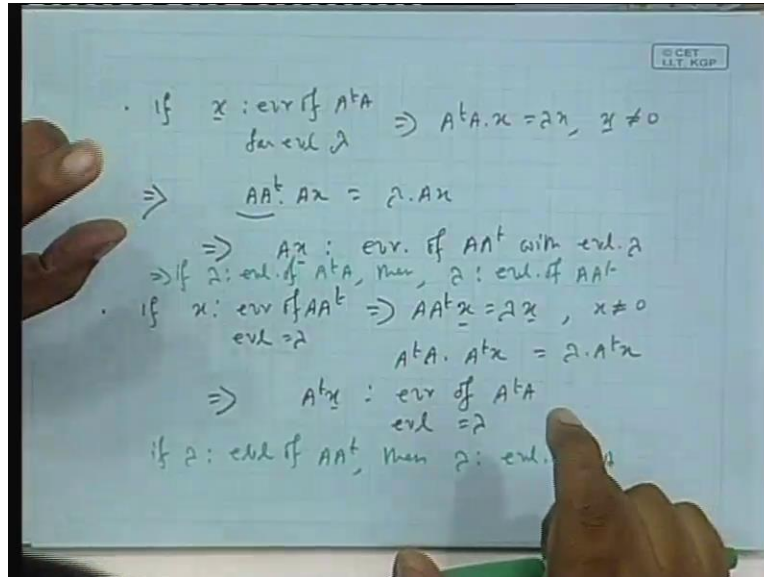 © CET
I.I.T. KGP
· If x : evr of AᵗA
for evl λ ⇒ AᵗA.x = λx, x ≠ 0
⇒ AAᵗ. Ax = λ.Ax
⇒ Ax : evr. of AAᵗ with evl. λ
⇒ if λ: evl. of AᵗA, then, λ: evl. of AAᵗ
· If x: evr of AAᵗ ⇒ AAᵗx = λx, x ≠ 0
evl = λ
AᵗA. Aᵗx = λ.Aᵗx
⇒ Aᵗx : evr of AᵗA
evl = λ
if λ: evl of AAᵗ, then λ: evl. A